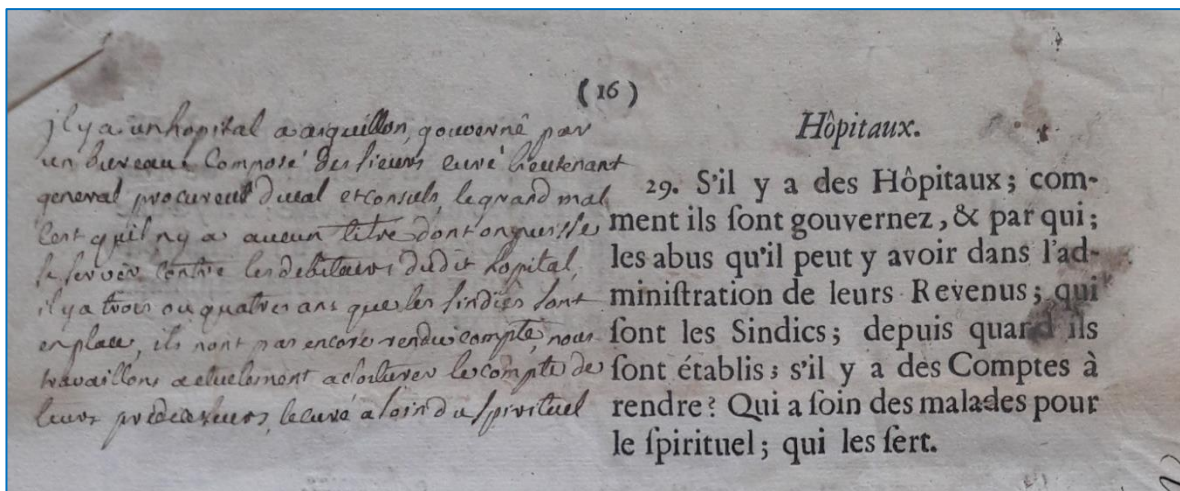 (16)
jl y a un hopital a aiguillon, gouverné par
un bureau Composé des sieurs curé lieutenant
general procureur ducal et consuls, le grand mal
Cest quil ny a aucun titre dont on puisse
se servir contre les debiteurs du dit hopital,
il y a trois ou quatres ans que les sindics sont
en place, ils nont pas encore rendu compte, nous
travaillons actuelement a cloturer le compte de
leurs predecesseurs, le curé a soin du spirituel
Hôpitaux.
29. S'il y a des Hôpitaux ; com-
ment ils ſont gouvernez, & par qui ;
les abus qu'il peut y avoir dans l'ad-
miniſtration de leurs Revenus ; qui
ſont les Sindics ; depuis quand ils
ſont établis ; s'il y a des Comptes à
rendre ? Qui a ſoin des malades pour
le ſpirituel ; qui les ſert.